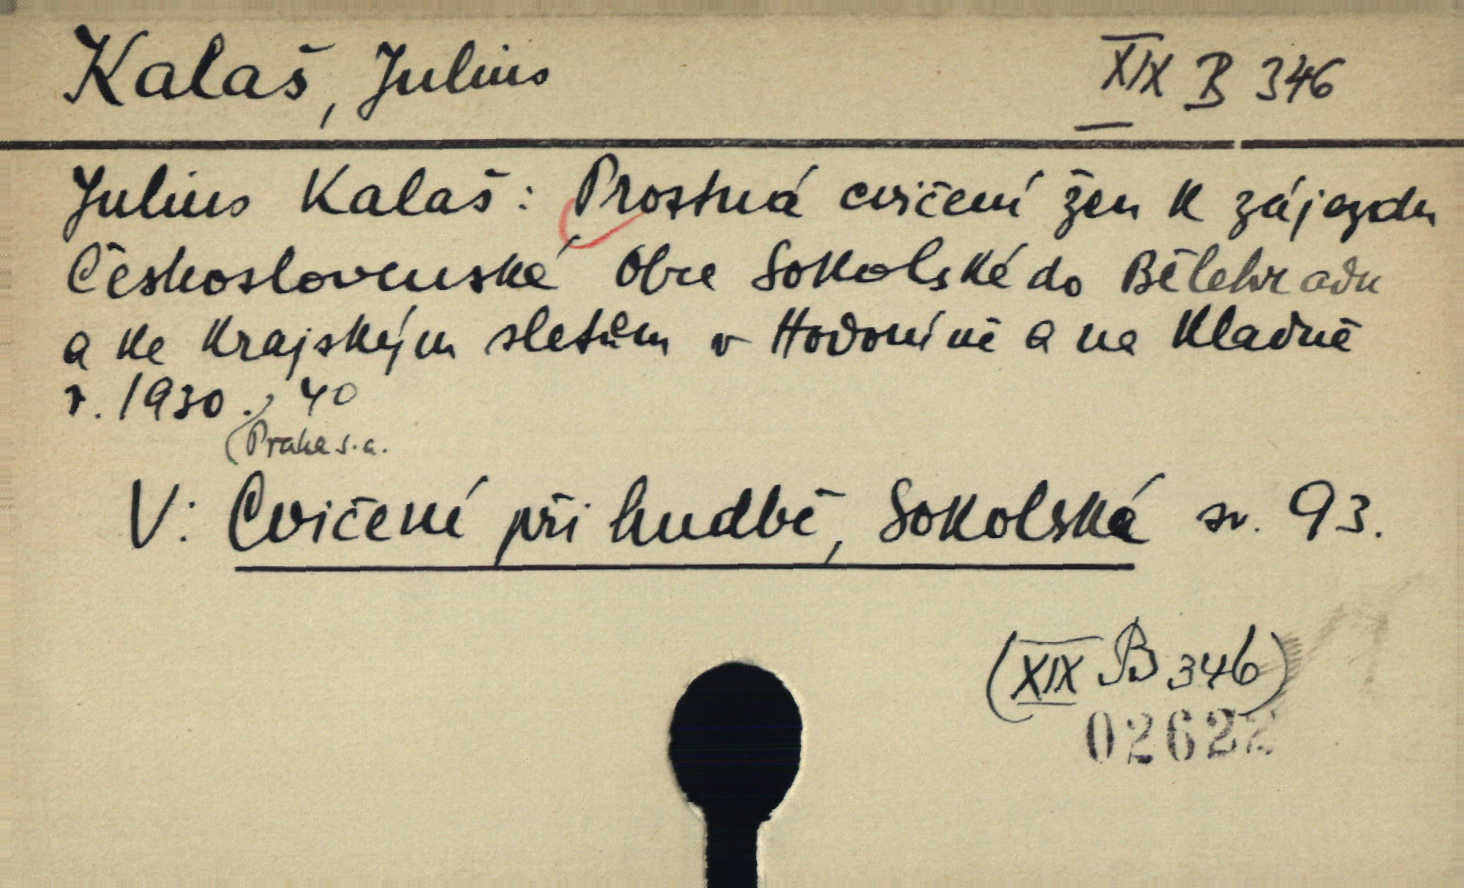 Kalaš, Julius XIX B 346
Julius Kalaš: Prostná cvičení žen k zájezdu
Československé Obce Sokolské do Bělehradu
a ke krajským sletům v Hodoníně a na Kladně
r. 1930., 40
Praha s.a.
V: Cvičení při hudbě, Sokolská sv. 93.
(XIX B 346)
02622